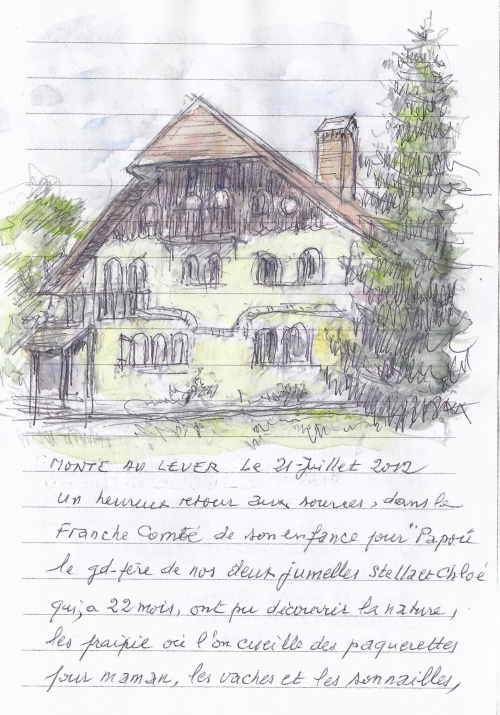 MONTE AU LEVER Le 21-Juillet 2012
un heureux retour aux sources, dans la
Franche Comté de son enfance pour "Papou
le gd-père de nos deux jumelles Stella et Chloé
qui, a 22 mois, ont pu découvrir la nature,
les prairie où l'on cueille des paquerettes
pour maman, les vaches et les sonnailles,